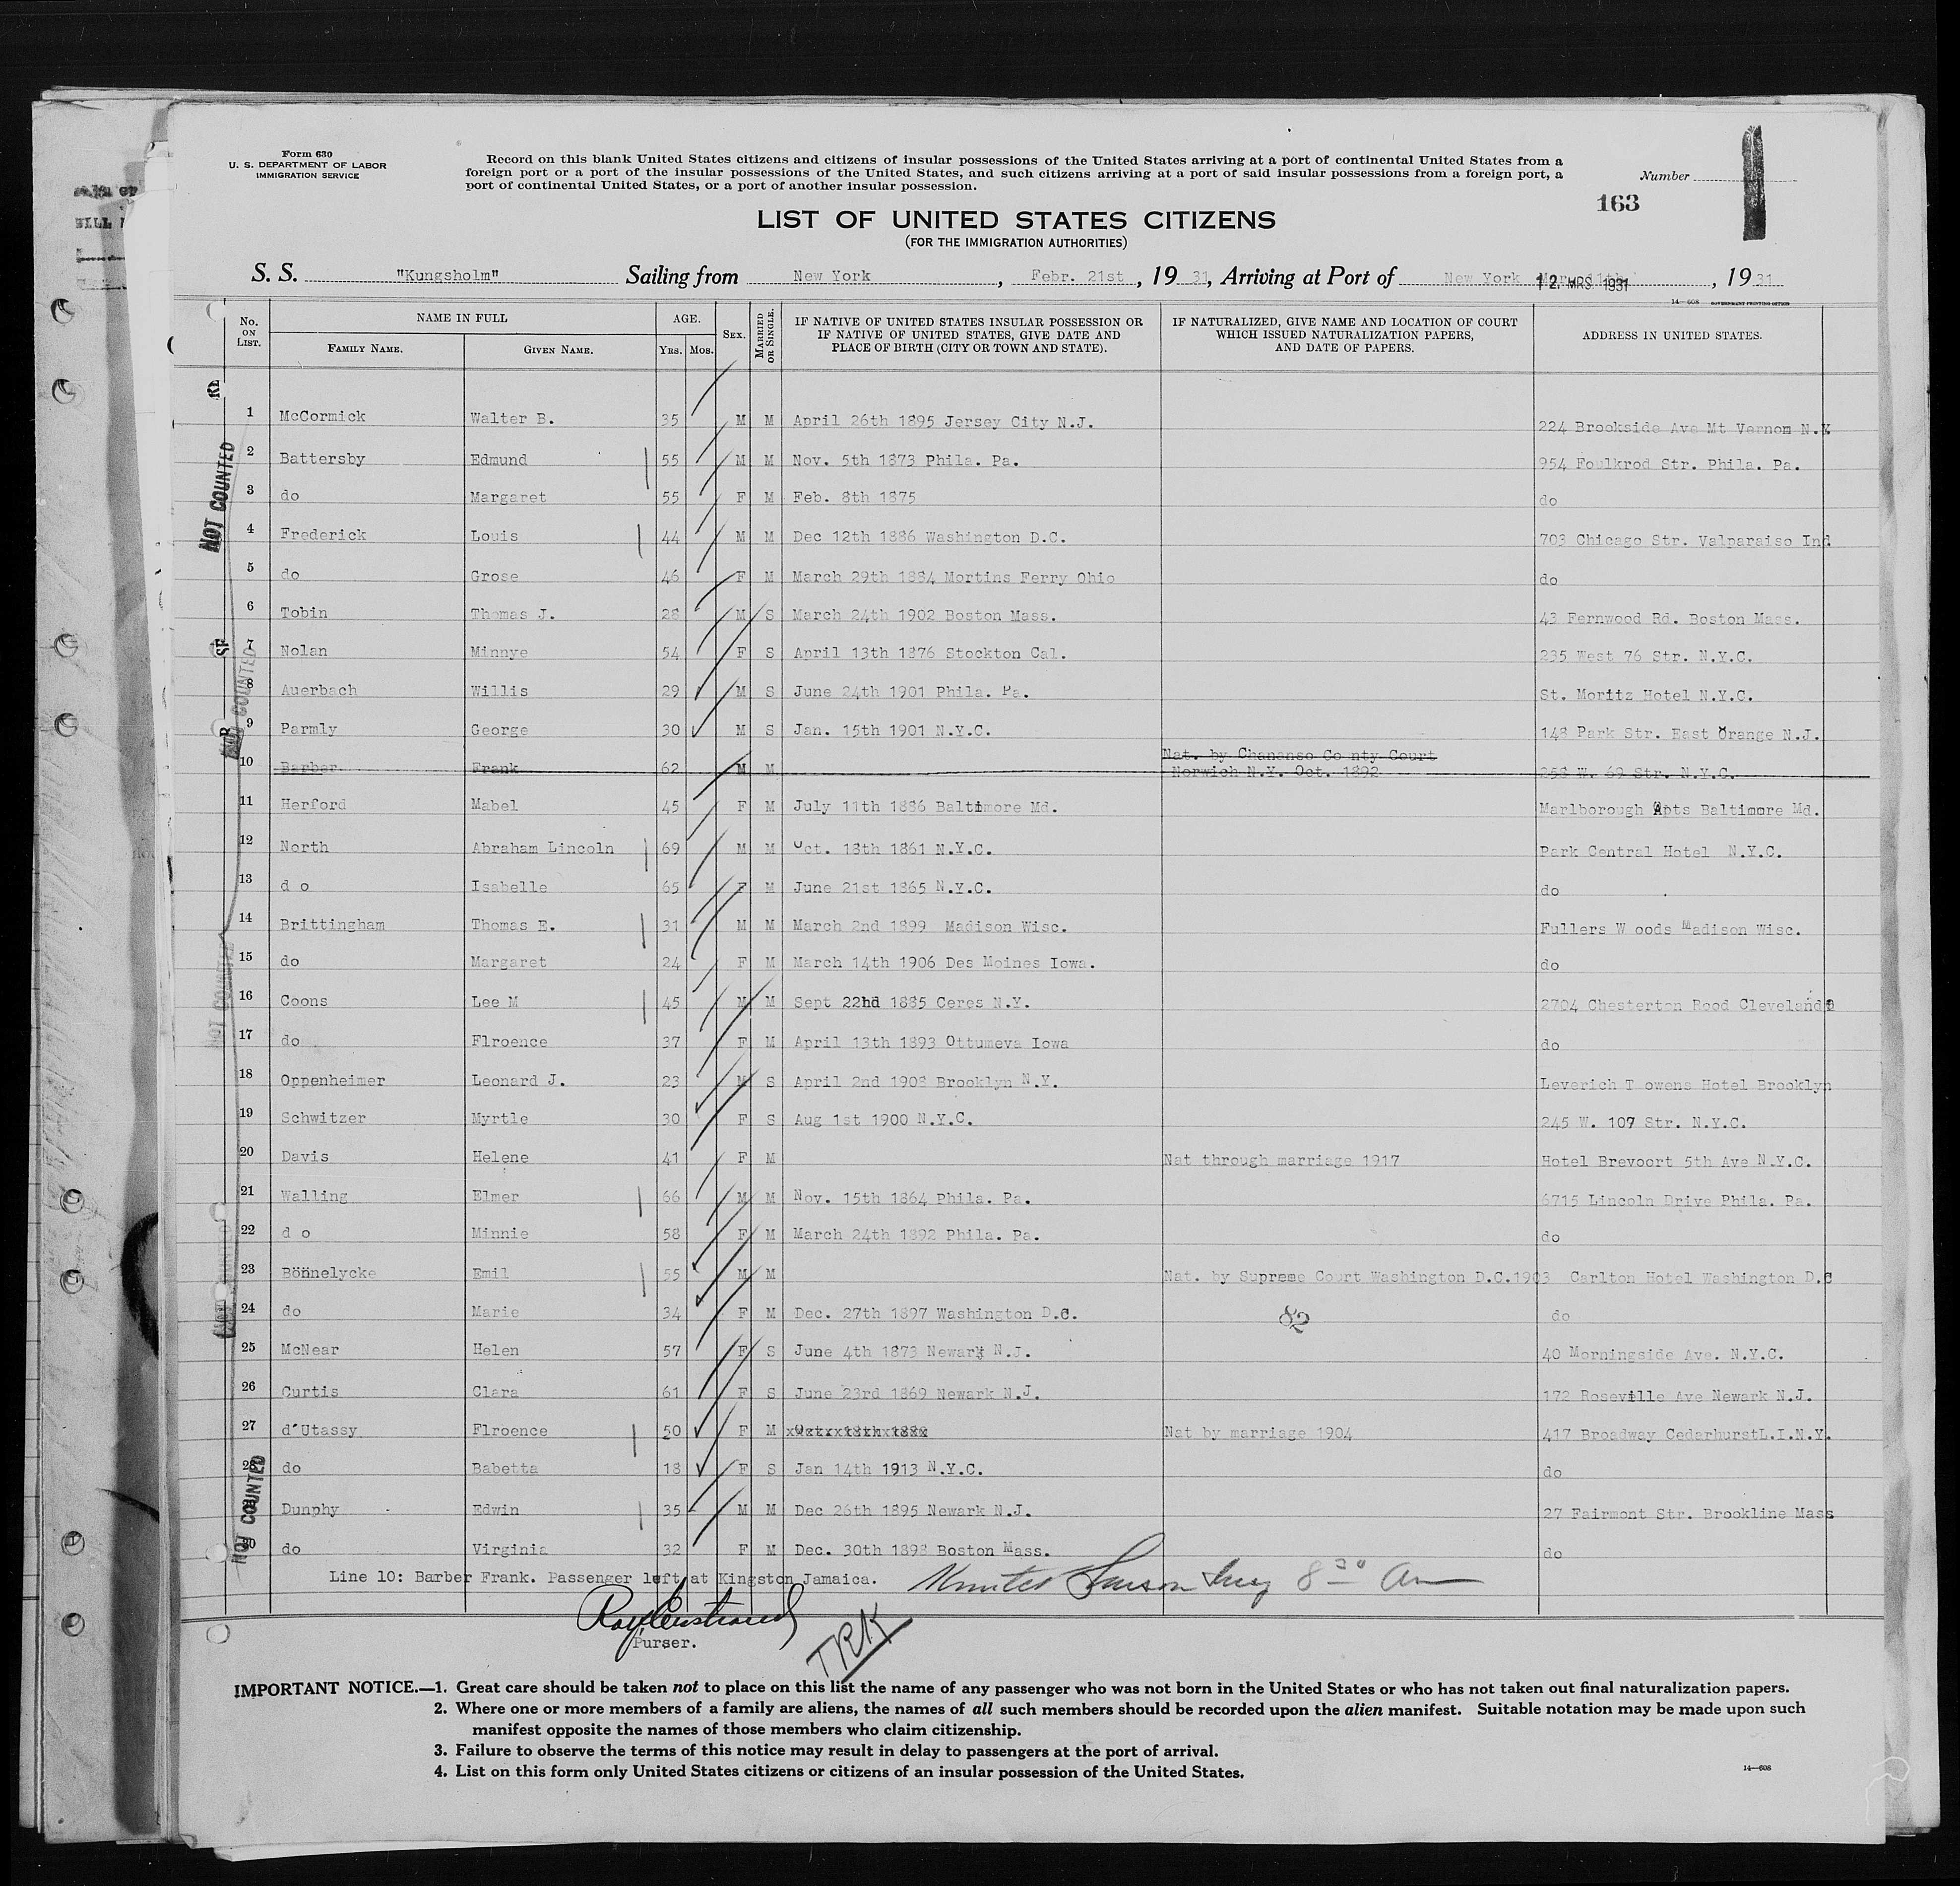 Form 630
U. S. DEPARTMENT OF LABOR
IMMIGRATION SERVICE
Record on this blank United States citizens and citizens of insular possessions of the United States arriving at a port of continental United States from a
foreign port or a port of the insular possessions of the United States, and such citizens arriving at a port of said insular possessions from a foreign port, a
port of continental United States, or a port of another insular possession.
Number
163
LIST OF UNITED STATES CITIZENS
(FOR THE IMMIGRATION AUTHORITIES)
S. S. "Kungsholm" Sailing from New York, Febr. 21st, 19 31, Arriving at Port of New York 12 MRS 1931, 19 31
14—608 GOVERNMENT PRINTING OFFICE
No. ON LIST. NAME IN FULL FAMILY NAME. GIVEN NAME. AGE. YRS. MOS. SEX. MARRIED OR SINGLE. IF NATIVE OF UNITED STATES INSULAR POSSESSION OR IF NATIVE OF UNITED STATES, GIVE DATE AND PLACE OF BIRTH (CITY OR TOWN AND STATE). IF NATURALIZED, GIVE NAME AND LOCATION OF COURT WHICH ISSUED NATURALIZATION PAPERS, AND DATE OF PAPERS. ADDRESS IN UNITED STATES.
1 McCormick Walter B. 35 M M April 26th 1895 Jersey City N.J. 224 Brookside Ave Mt Vernon N.Y
2 Battersby Edmund 55 M M Nov. 5th 1873 Phila. Pa. 954 Foulkrod Str. Phila. Pa.
3 do Margaret 55 F M Feb. 8th 1875 do
4 Frederick Louis 44 M M Dec 12th 1886 Washington D.C. 703 Chicago Str. Valparaiso Ind
5 do Grose 46 F M March 29th 1884 Mortins Ferry Ohio do
6 Tobin Thomas J. 28 M S March 24th 1902 Boston Mass. 43 Fernwood Rd. Boston Mass.
7 Nolan Minnye 54 F S April 13th 1876 Stockton Cal. 235 West 76 Str. N.Y.C.
8 Auerbach Willis 29 M S June 24th 1901 Phila. Pa. St. Moritz Hotel N.Y.C.
9 Parmly George 30 M S Jan. 15th 1901 N.Y.C. 148 Park Str. East Orange N.J.
10 Barber Frank 62 M M Nat. by Chananso County Court Norwich N.Y. Oct. 1892 258 W. 69 Str. N.Y.C.
11 Herford Mabel 45 F M July 11th 1886 Baltimore Md. Marlborough Apts Baltimore Md.
12 North Abraham Lincoln 69 M M Oct. 18th 1861 N.Y.C. Park Central Hotel N.Y.C.
13 d o Isabelle 65 F M June 21st 1865 N.Y.C. do
14 Brittingham Thomas E. 31 M M March 2nd 1899 Madison Wisc. Fullers W oods Madison Wisc.
15 do Margaret 24 F M March 14th 1906 Des Moines Iowa. do
16 Coons Lee M 45 M M Sept 22hd 1885 Ceres N.Y. 2704 Chesterton Rood Cleveland O
17 do Flroence 37 F M April 13th 1893 Ottumeva Iowa do
18 Oppenheimer Leonard J. 23 M S April 2nd 1908 Brooklyn N.Y. Leverich T owens Hotel Brooklyn
19 Schwitzer Myrtle 30 F S Aug 1st 1900 N.Y.C. 245 W. 107 Str. N.Y.C.
20 Davis Helene 41 F M Nat through marriage 1917 Hotel Brevoort 5th Ave N.Y.C.
21 Walling Elmer 66 M M Nov. 15th 1864 Phila. Pa. 6715 Lincoln Drive Phila. Pa.
22 d o Minnie 58 F M March 24th 1892 Phila. Pa. do
23 Bönnelycke Emil 55 M M Nat. by Supreme Court Washington D.C.1903 Carlton Hotel Washington D.C
24 do Marie 34 F M Dec. 27th 1897 Washington D.C. do
82
25 McNear Helen 57 F S June 4th 1873 Newark N.J. 40 Morningside Ave. N.Y.C.
26 Curtis Clara 61 F S June 23rd 1869 Newark N.J. 172 Roseville Ave Newark N.J.
27 d'Utassy Flroence 50 F M Nat by marriage 1904 417 Broadway CedarhurstL.I.N.Y.
28 do Babetta 18 F S Jan 14th 1913 N.Y.C. do
Dunphy Edwin 35 M M Dec 26th 1895 Newark N.J. 27 Fairmont Str. Brookline Mass
30 do Virginia 32 F M Dec. 30th 1898 Boston Mass. do
Line 10: Barber Frank. Passenger left at Kingston Jamaica.
8 30 Am
Purser.
TRK
NOT COUNTED
NOT COUNTED
NOT COUNTED
NOT COUNTED
IMPORTANT NOTICE.—1. Great care should be taken not to place on this list the name of any passenger who was not born in the United States or who has not taken out final naturalization papers.
2. Where one or more members of a family are aliens, the names of all such members should be recorded upon the alien manifest. Suitable notation may be made upon such
manifest opposite the names of those members who claim citizenship.
3. Failure to observe the terms of this notice may result in delay to passengers at the port of arrival.
4. List on this form only United States citizens or citizens of an insular possession of the United States.
14—608